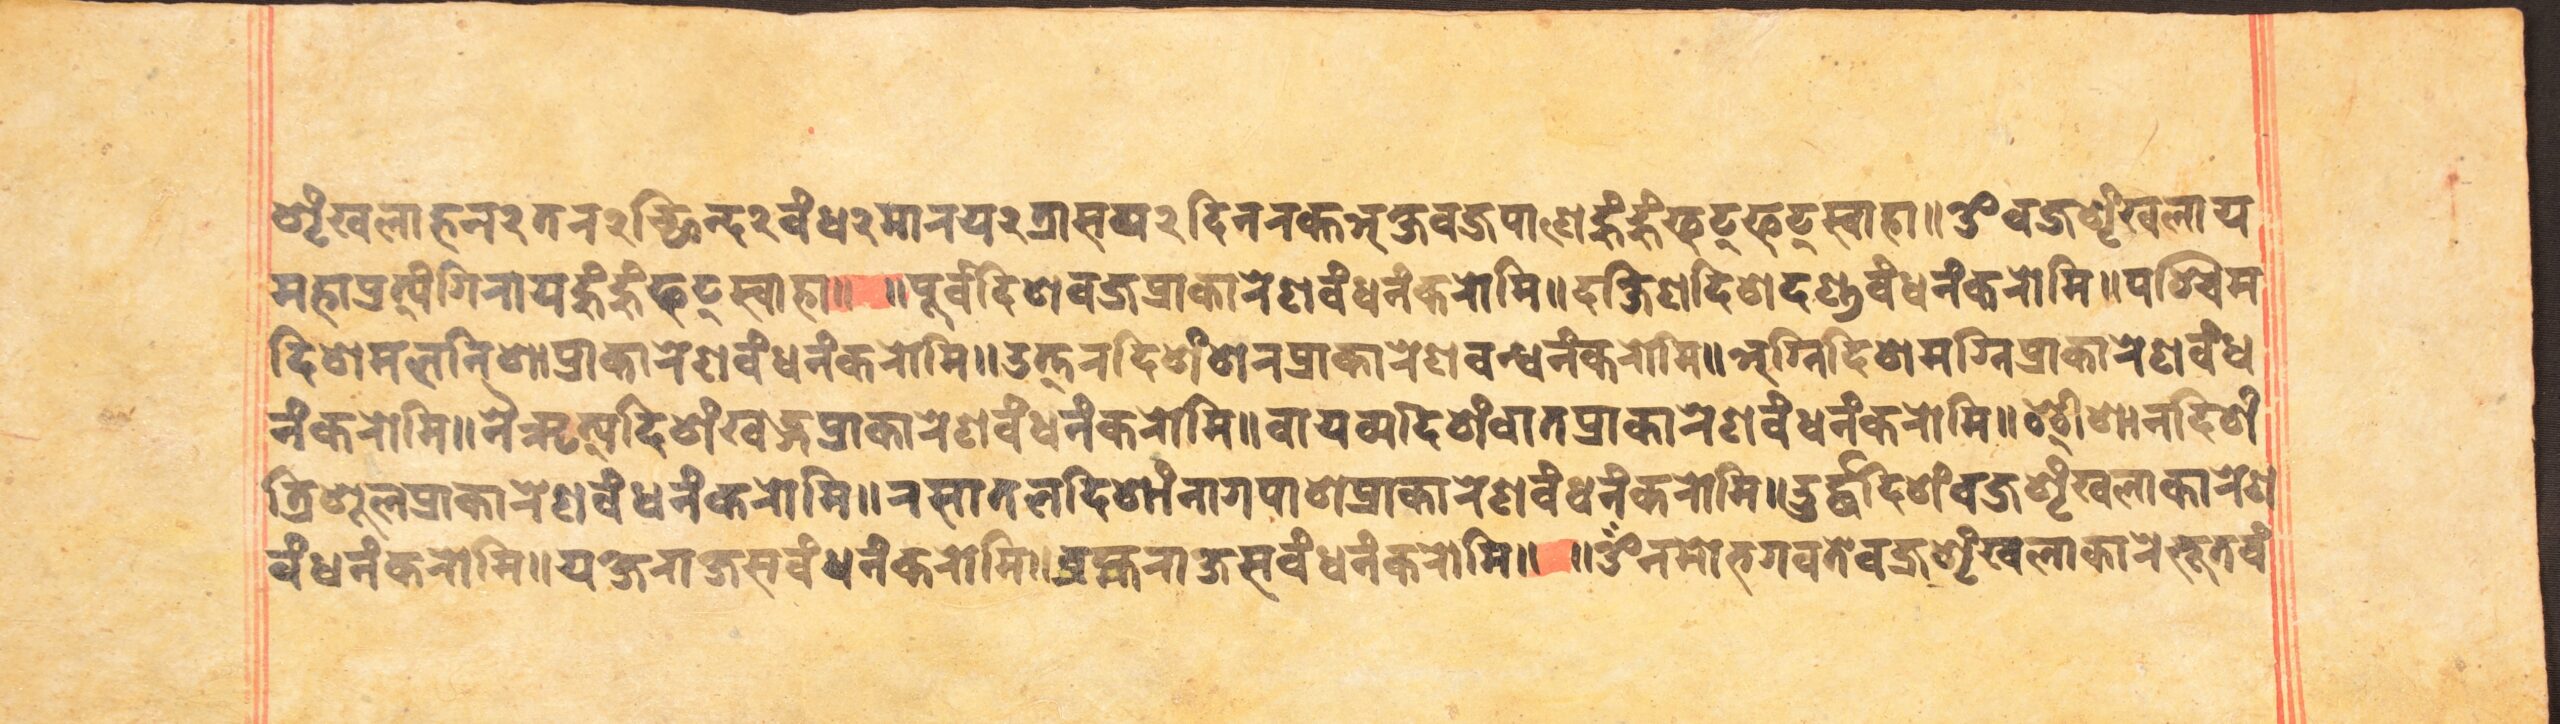 शृंखला हन२तन२च्छिन्द२वंध२मानय२त्रासय२दिननक्तअक्षवज्रपाशे हुंहुंफट्फट्स्वाहा॥ॐवज्रशृंखलाय
महाप्रत्यंगिनायहुंहुंफट्स्वाहा॥ ॥पूर्वदिशवज्रप्राकारेणवंधनंकरोमि॥दक्षिणदिशदण्डवंधनंकरोमि॥पश्चिम
दिशमलनिशाप्राकारेणवंधनंकरोमि॥उत्तरदिशंशरप्राकारेणवन्धनंकरोमि॥अग्निदिशमग्निप्राकारेणवंध
नंकरोमि॥नैऋत्यदिशंखड्गप्राकारेणवंधनंकरोमि॥वायव्यदिशंवातप्राकारेणवंधनंकरोमि॥ईशानदिशं
त्रिशूलप्राकारेणवंधनंकरोमि॥रसातलदिशांनागपाशप्राकारेणवंधनंकरोमि॥उर्द्धदिशंवज्रशृंखलाकारेण
वंधनंकरोमि॥यक्षराक्षसवंधनंकरोमि॥ब्रह्मराक्षसवंधनंकरोमि॥ ॥ॐनमोभगवतेवज्रशृंखलाकारेभूतवं